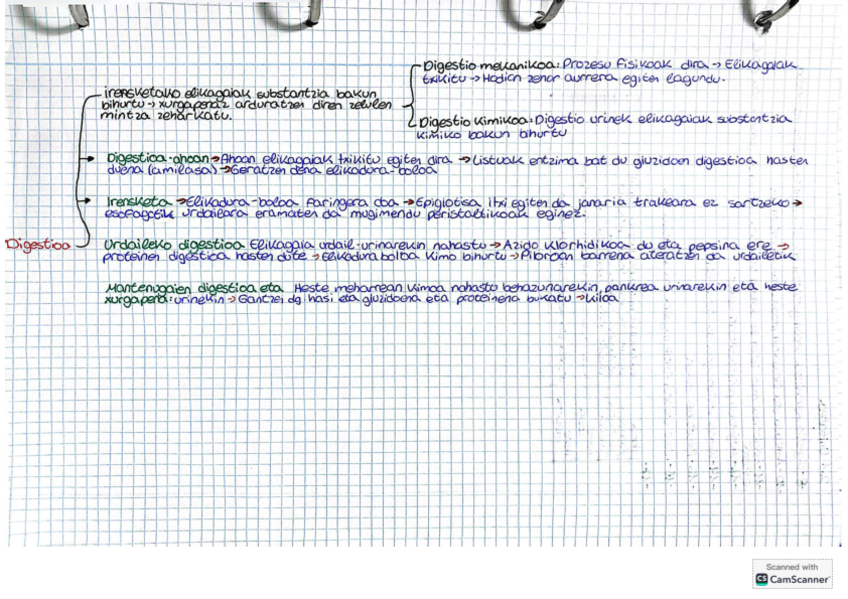 Digestio mekanikoa: Prozesu fisikoak dira → Elikagaiak
txikitu → Hodian zehar aurrera egiten lagundu.
irensketako elikagaiak substantzia bakun
bihurtu → xurgapenaz arduratzen diren zelulen
mintza zeharkatu.
Digestio kimikoa: Digestio urinek elikagaiak substantzia
kimiko bakun bihurtu
Digestioa ahoan → Ahoan elikagaiak txikitu egiten dira → Listuak entzima bat du gluzidoen digestioa hasten
duena (amilasa) → Geratzen dena elikadura-boloa
Irensketa → Elikadura-boloa Faringera doa → Epiglotisa itxi egiten da janaria trakeara ez sartzeko →
esofagotik urdailara eramaten da mugimendu peristaltikoak eginez.
Digestioa
Urdaileko digestioa Elikagaia urdail-urinarekin nahastu → Azido klorhidikoa du eta pepsina ere →
proteinen digestioa hasten dute → Elikadura boloa kimo bihurtu → Piloroan barrena ateratzen da urdailetik
Mantenugaien digestioa eta Heste meharrean kimoa nahasto behazunarekin, pankrea urinarekin eta heste
xurgapena: urinekin → Gantzei dg hasi eta gluzidoena eta proteinena bukatu → kiloa
Scanned with
CS CamScanner